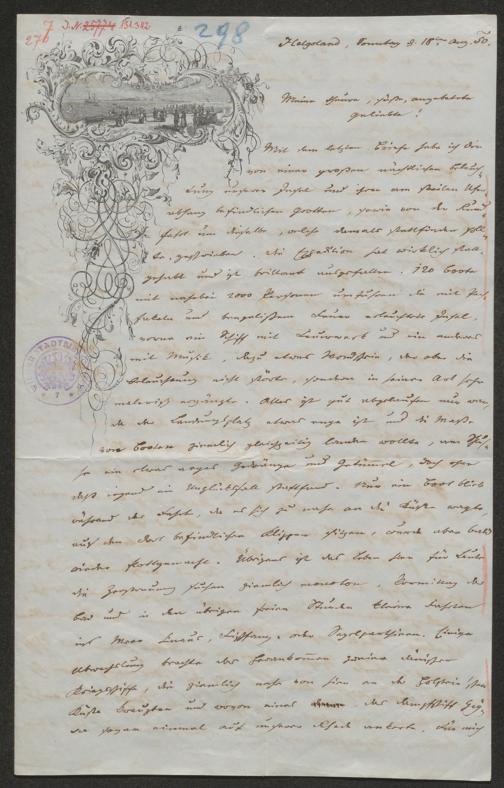 7 J.N. 25774 Bl. 342
276
298
Helgoland, Sonntag d. 18ten Aug. 50.
Meine theure, süße, angebetete
geliebte!
Mit dem letzten Briefe habe ich Dir
von einer großen nächtlichen Beleuch-
tung unserer Insel und ihrer am steilen Ufer
abhang befindlichen Grotten, sowie von der Rund
fahrt um dieselbe, welche damals stattfinden soll-
te, geschrieben. Die Expedition hat wirklich statt-
gehabt und ist brillant ausgefallen. 120 Boote
mit nahebei 1000 Personen umfuhren die mit Pech-
fakeln und bengalischem Feuer erleuchtete Insel,
vorne ein Schiff mit und ein anderes
mit Musik, dazu etwas Mondschein, der aber die
Beleuchtung nicht störte, sondern in seiner Art sehr
malerisch ergänzte. Alles ist gut abgelaufen nur wur-
de der Landungsplatz etwas enge ist und die Masse
von Booten ziemlich gleichzeitig landen wollte, war
so ein etwas arges Gedränge und Getümmel, doch ohne
daß irgend ein Unglücksfall stattfand. Nur ein Boot blieb
während der Fahrt, da es sich zu nahe an die Küste wagte,
auf den dort befindlichen Klippen sitzen, wurde aber bald
wieder flottgemacht. Übrigens ist das Leben hier für Leute
die Zerstreuung suchen ziemlich monoton. Vormittag das
Bad und in den übrigen freien Stunden kleine Fahrten
ins Meer hinaus, Fischfang, oder Segelparthieen. Einige
Abwechslung brachte das Herankommen zweier dänischer
Kriegsschiffe, die ziemlich nahe von hier an der Holstein'schen
Küste kreuzten und wovon eines das Dampfschiff
sogar einmal auf unserer Rhede ankerte. Für mich